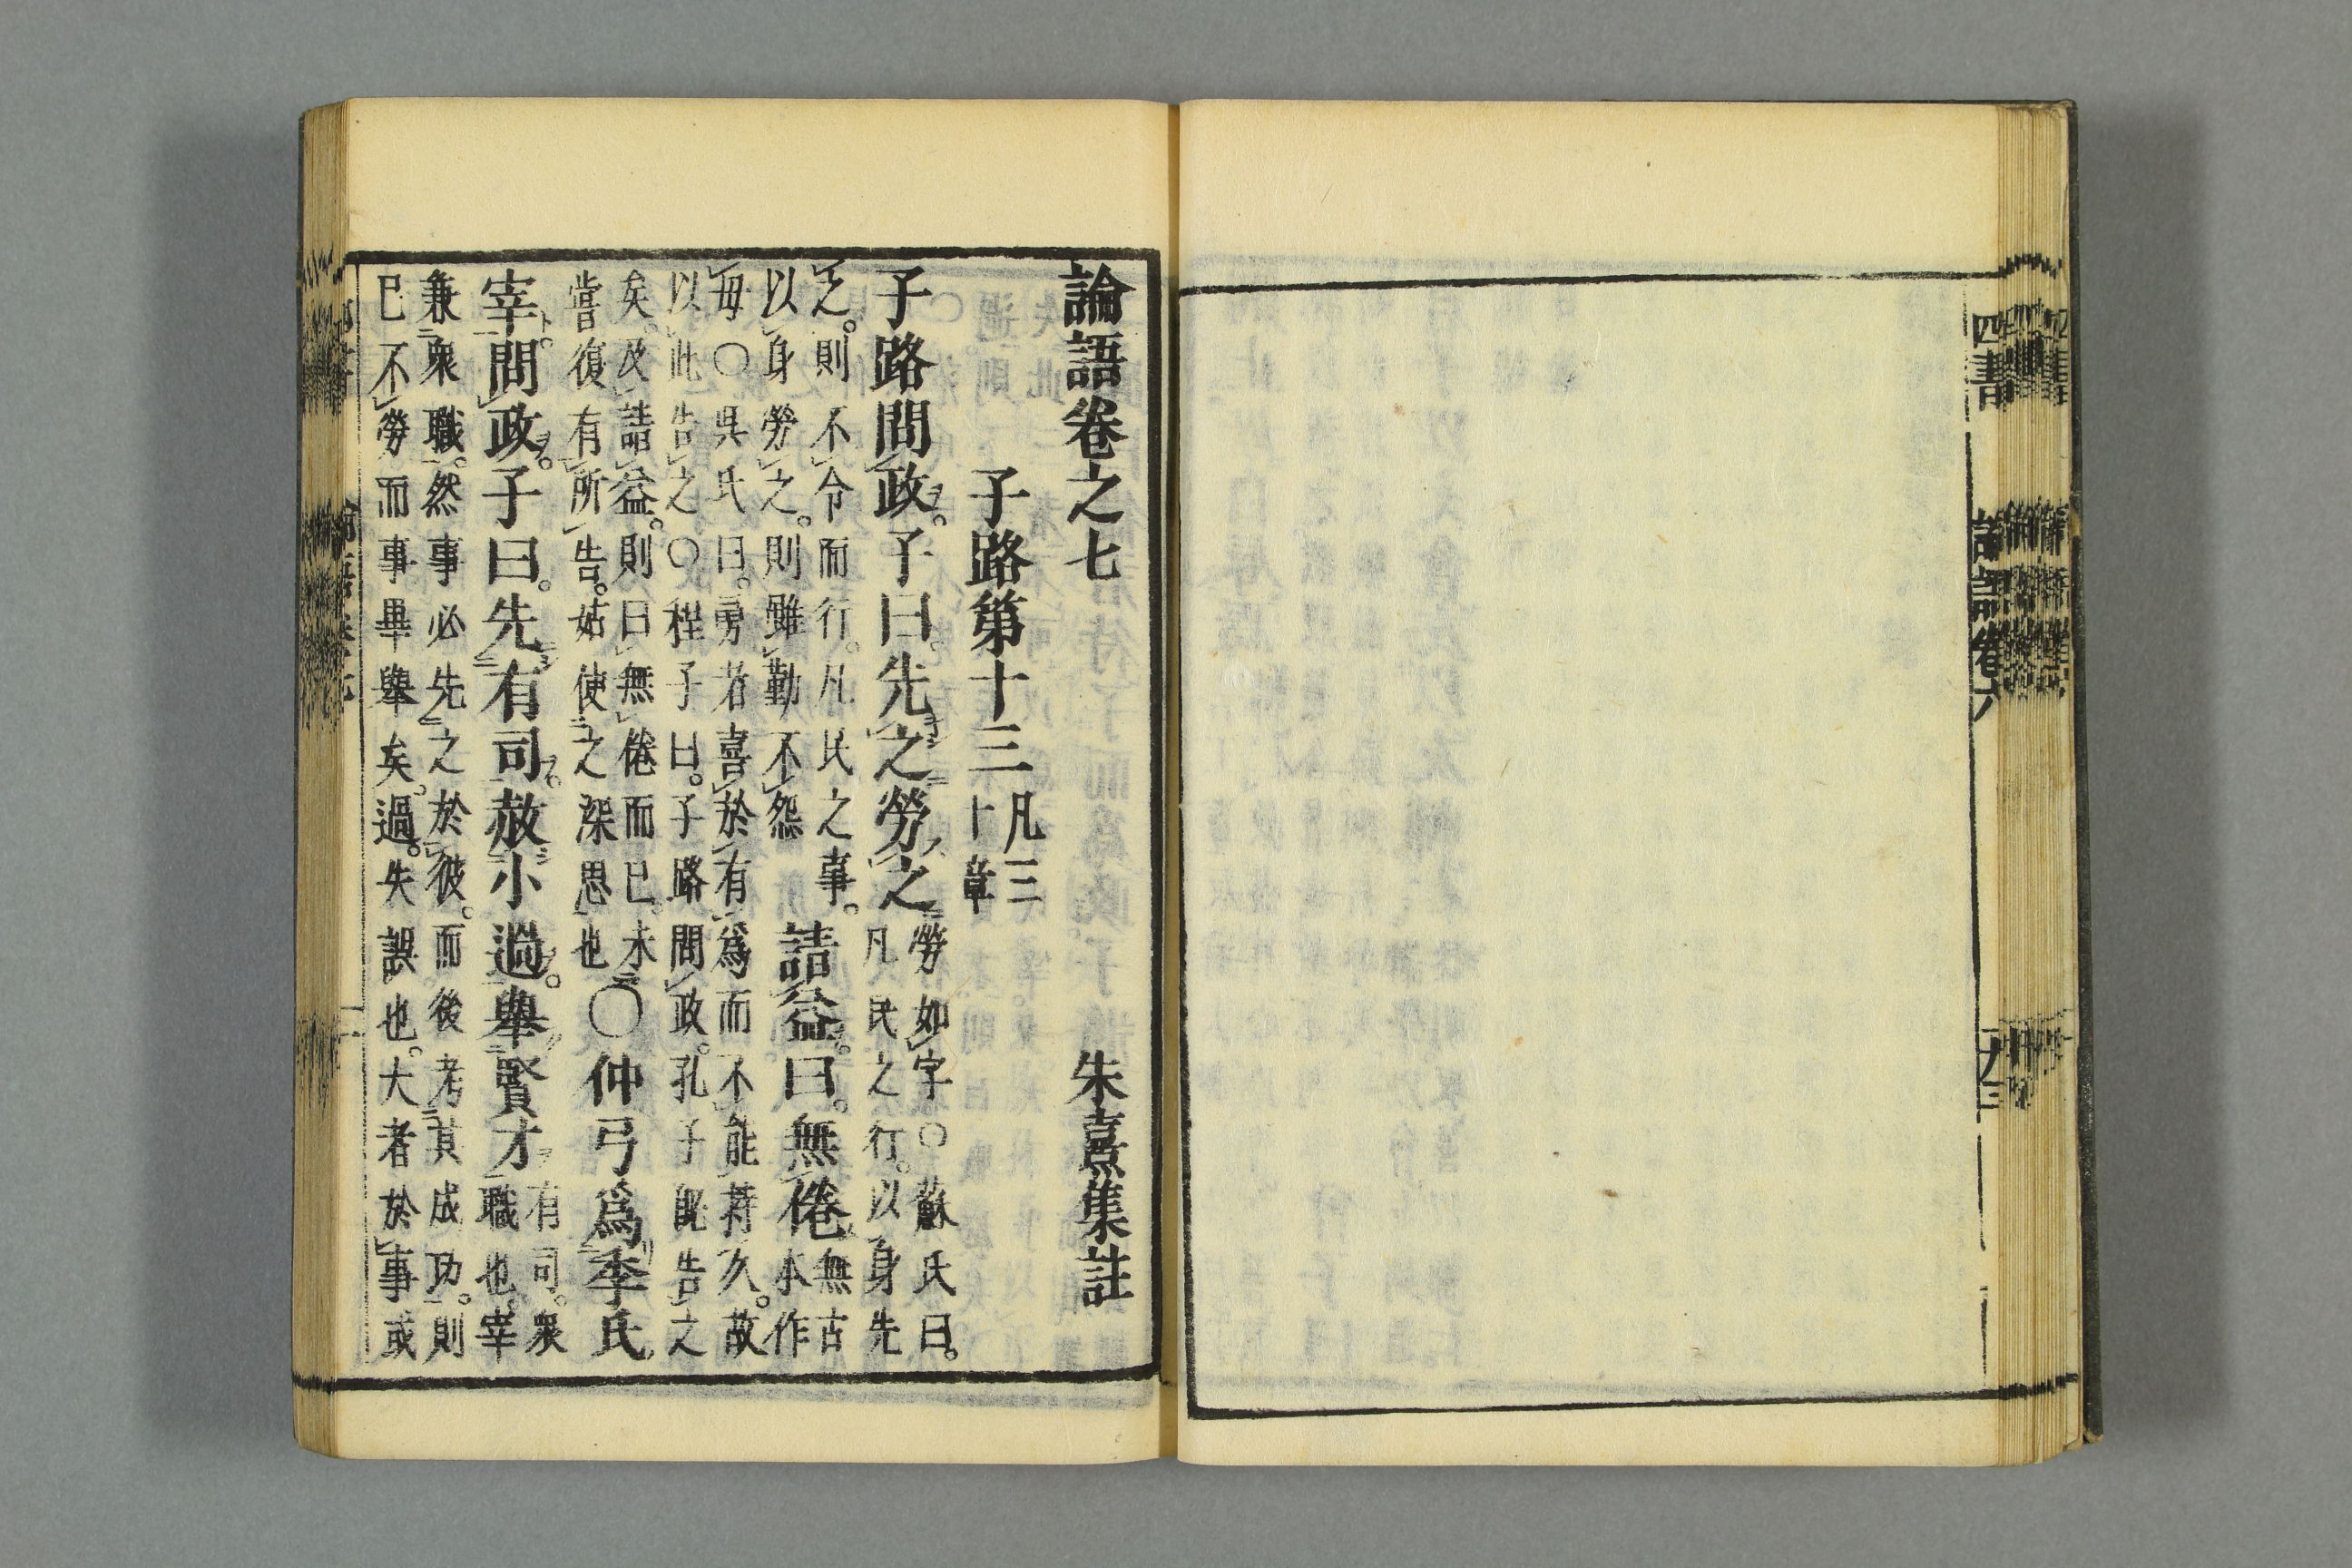 四書
論語卷六
論語卷之七 朱熹集註
子路第十三 凡三
十章
子路問政。子曰。先之勞之 勞如字○蘇氏曰。
凡民之行。以身先
之。則不令而行。凡民之事。
以身勞之。則雖勤不怨
請益。曰。無倦 無古
本作
毋○吳氏曰。勇者喜於有爲而不能持久。故
以此告之○程子曰。子路問政。孔子既告之
矣。及請益。則曰無倦而已。未
嘗復有所告。姑使之深思也
○仲弓爲季氏
宰。問政。子曰。先有司。赦小過。舉賢才 有司。衆
職也。宰
兼衆職。然事必先之於彼。而後考其成功。則
已不勞而事畢舉矣。過。失誤也。大者於事或